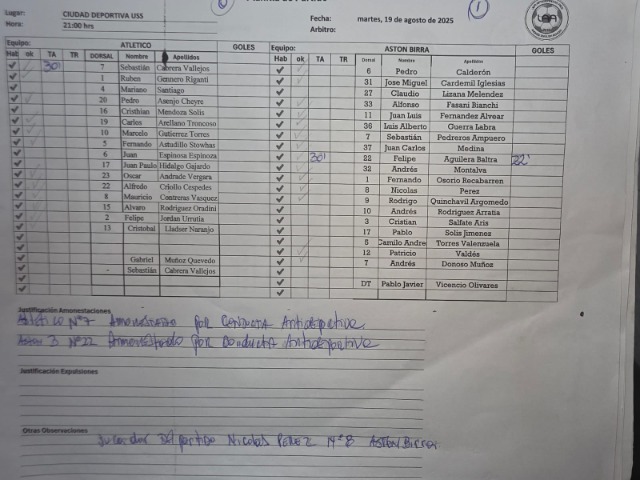 Planilla de Partido
1
Lugar: CIUDAD DEPORTIVA USS
Hora: 21:00 hrs
Fecha: martes, 19 de agosto de 2025
Arbitro:
Equipo: ATLETICO GOLES Equipo: ASTON BIRRA GOLES
Hab ok TA TR DORSAL Nombre Apellidos Hab ok TA TR Dorsal Nombre Apellidos
30' 7 Sebastián Cabrera Vallejos 6 Pedro Calderón
1 Ruben Gennero Riganti 31 Jose Miguel Cardemil Iglesias
4 Mariano Santiago 27 Claudio Lizana Melendez
20 Pedro Asenjo Cheyre 33 Alfonso Fasani Bianchi
16 Cristhian Mendoza Solis 11 Juan Luis Fernandez Alvear
19 Carlos Arellano Troncoso 36 Luis Alberto Guerra Labra
10 Marcelo Gutierrez Torres 7 Sebastián Pedreros Ampuero
5 Fernando Astudillo Stowhas 37 Juan Carlos Medina
6 Juan Espinosa Espinoza 30' 22 Felipe Aguilera Baltra 22'
17 Juan Paulo Hidalgo Gajardo 32 Andrés Montalva
23 Oscar Andrade Vergara 1 Fernando Osorio Recabarren
22 Alfredo Criollo Cespedes 8 Nicolas Perez
8 Mauricio Contreras Vasquez 9 Rodrigo Quinchavil Argomedo
15 Alvaro Rodriguez Oradini 10 Andrés Rodriguez Arratia
2 Felipe Jordan Urrutia 3 Cristian Salfate Aris
13 Cristobal Lladser Naranjo 17 Pablo Solis Jimenez
5 Camilo Andre Torres Valenzuela
Gabriel Muñoz Quevedo 12 Patricio Valdés
- Sebastián Cabrera Vallejos 7 Andrés Donoso Muñoz
DT Pablo Javier Vicencio Olivares
Justificación Amonestaciones
Atlético Nº7 Amonestado por Conducta Antideportiva
Aston B Nº22 Amonestado por Conducta Antideportiva
Justificación Expulsiones
Otras Observaciones
Jugador del partido Nicolas PEREZ Nº8 ASTON BIRRA